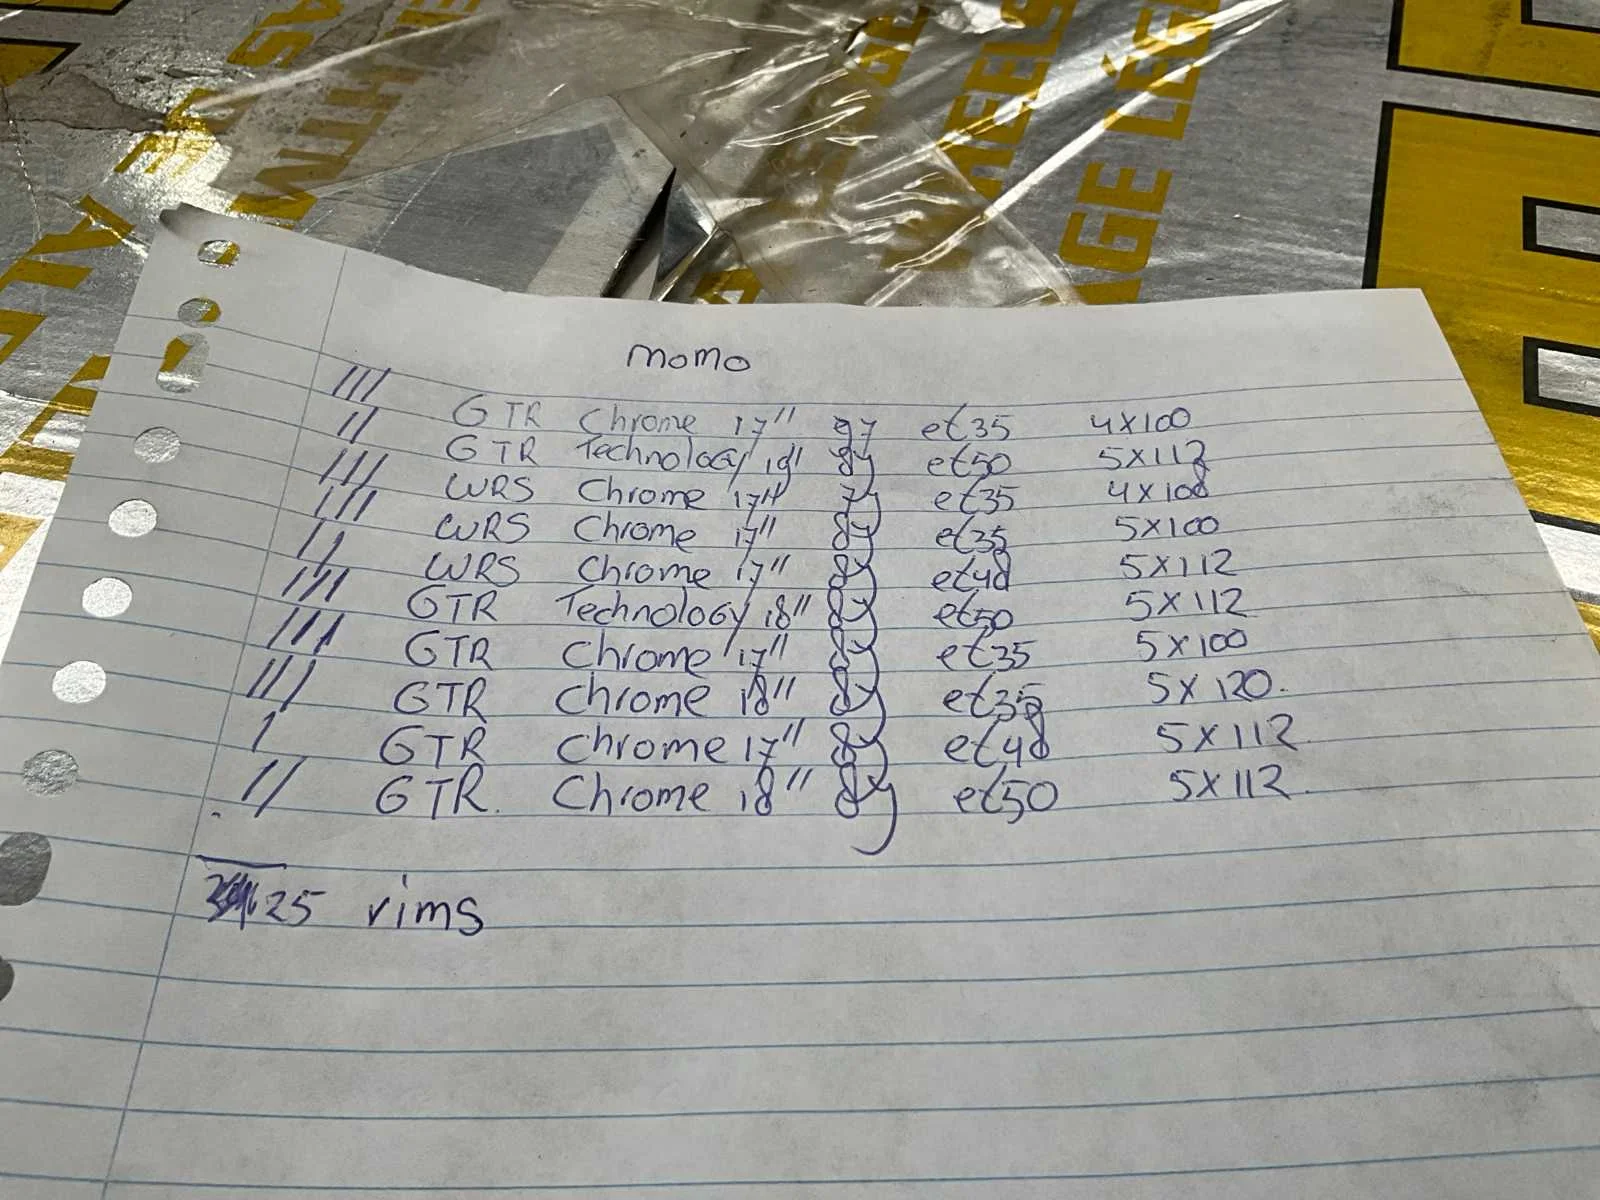 MEELS
AGE LÉGE
momo
/// GTR Chrome 17" et35 4x100
// GTR Technology et50 5x112
/// WRS Chrome 17" 7J et35 4x108
/// WRS Chrome 17" 8J et35 5x100
// WRS Chrome 17" 8J et48 5x112
/// GTR Technology 18" 8J et50 5x112
/// GTR Chrome 17" 8J et35 5x100
/// GTR Chrome 18" 8J et35 5x120.
/ GTR Chrome 17" 8J et48 5x112
// GTR. Chrome 18" 8J et50 5x112.
25 rims